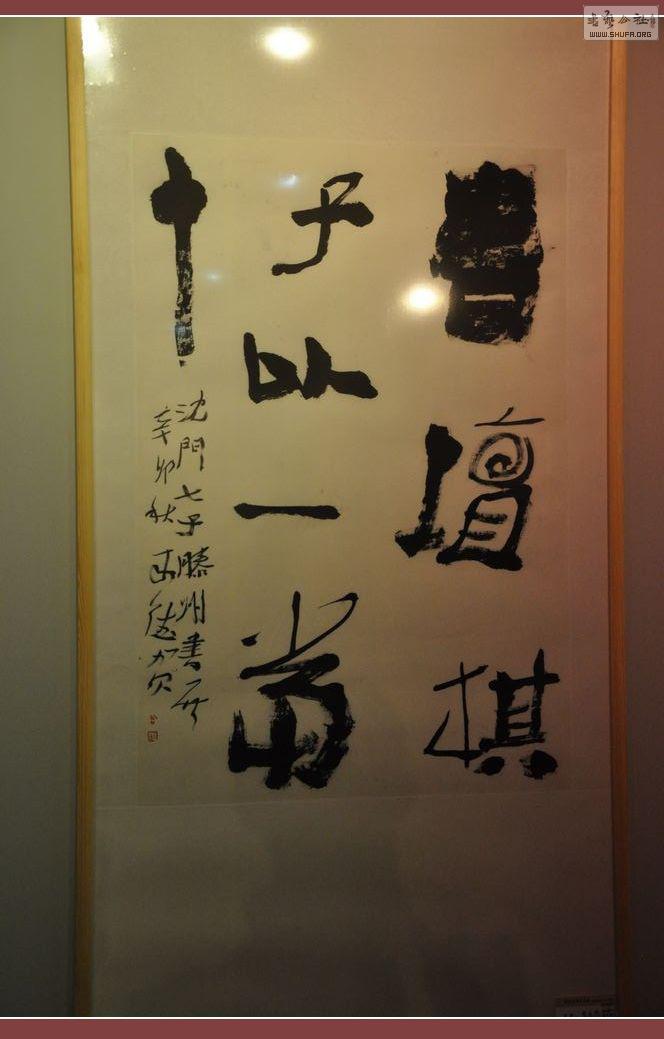 書壇棋
子以一當
十
沈門七子滕州書展
辛卯秋
賀
書藝公社
WWW.SHUFA.ORG